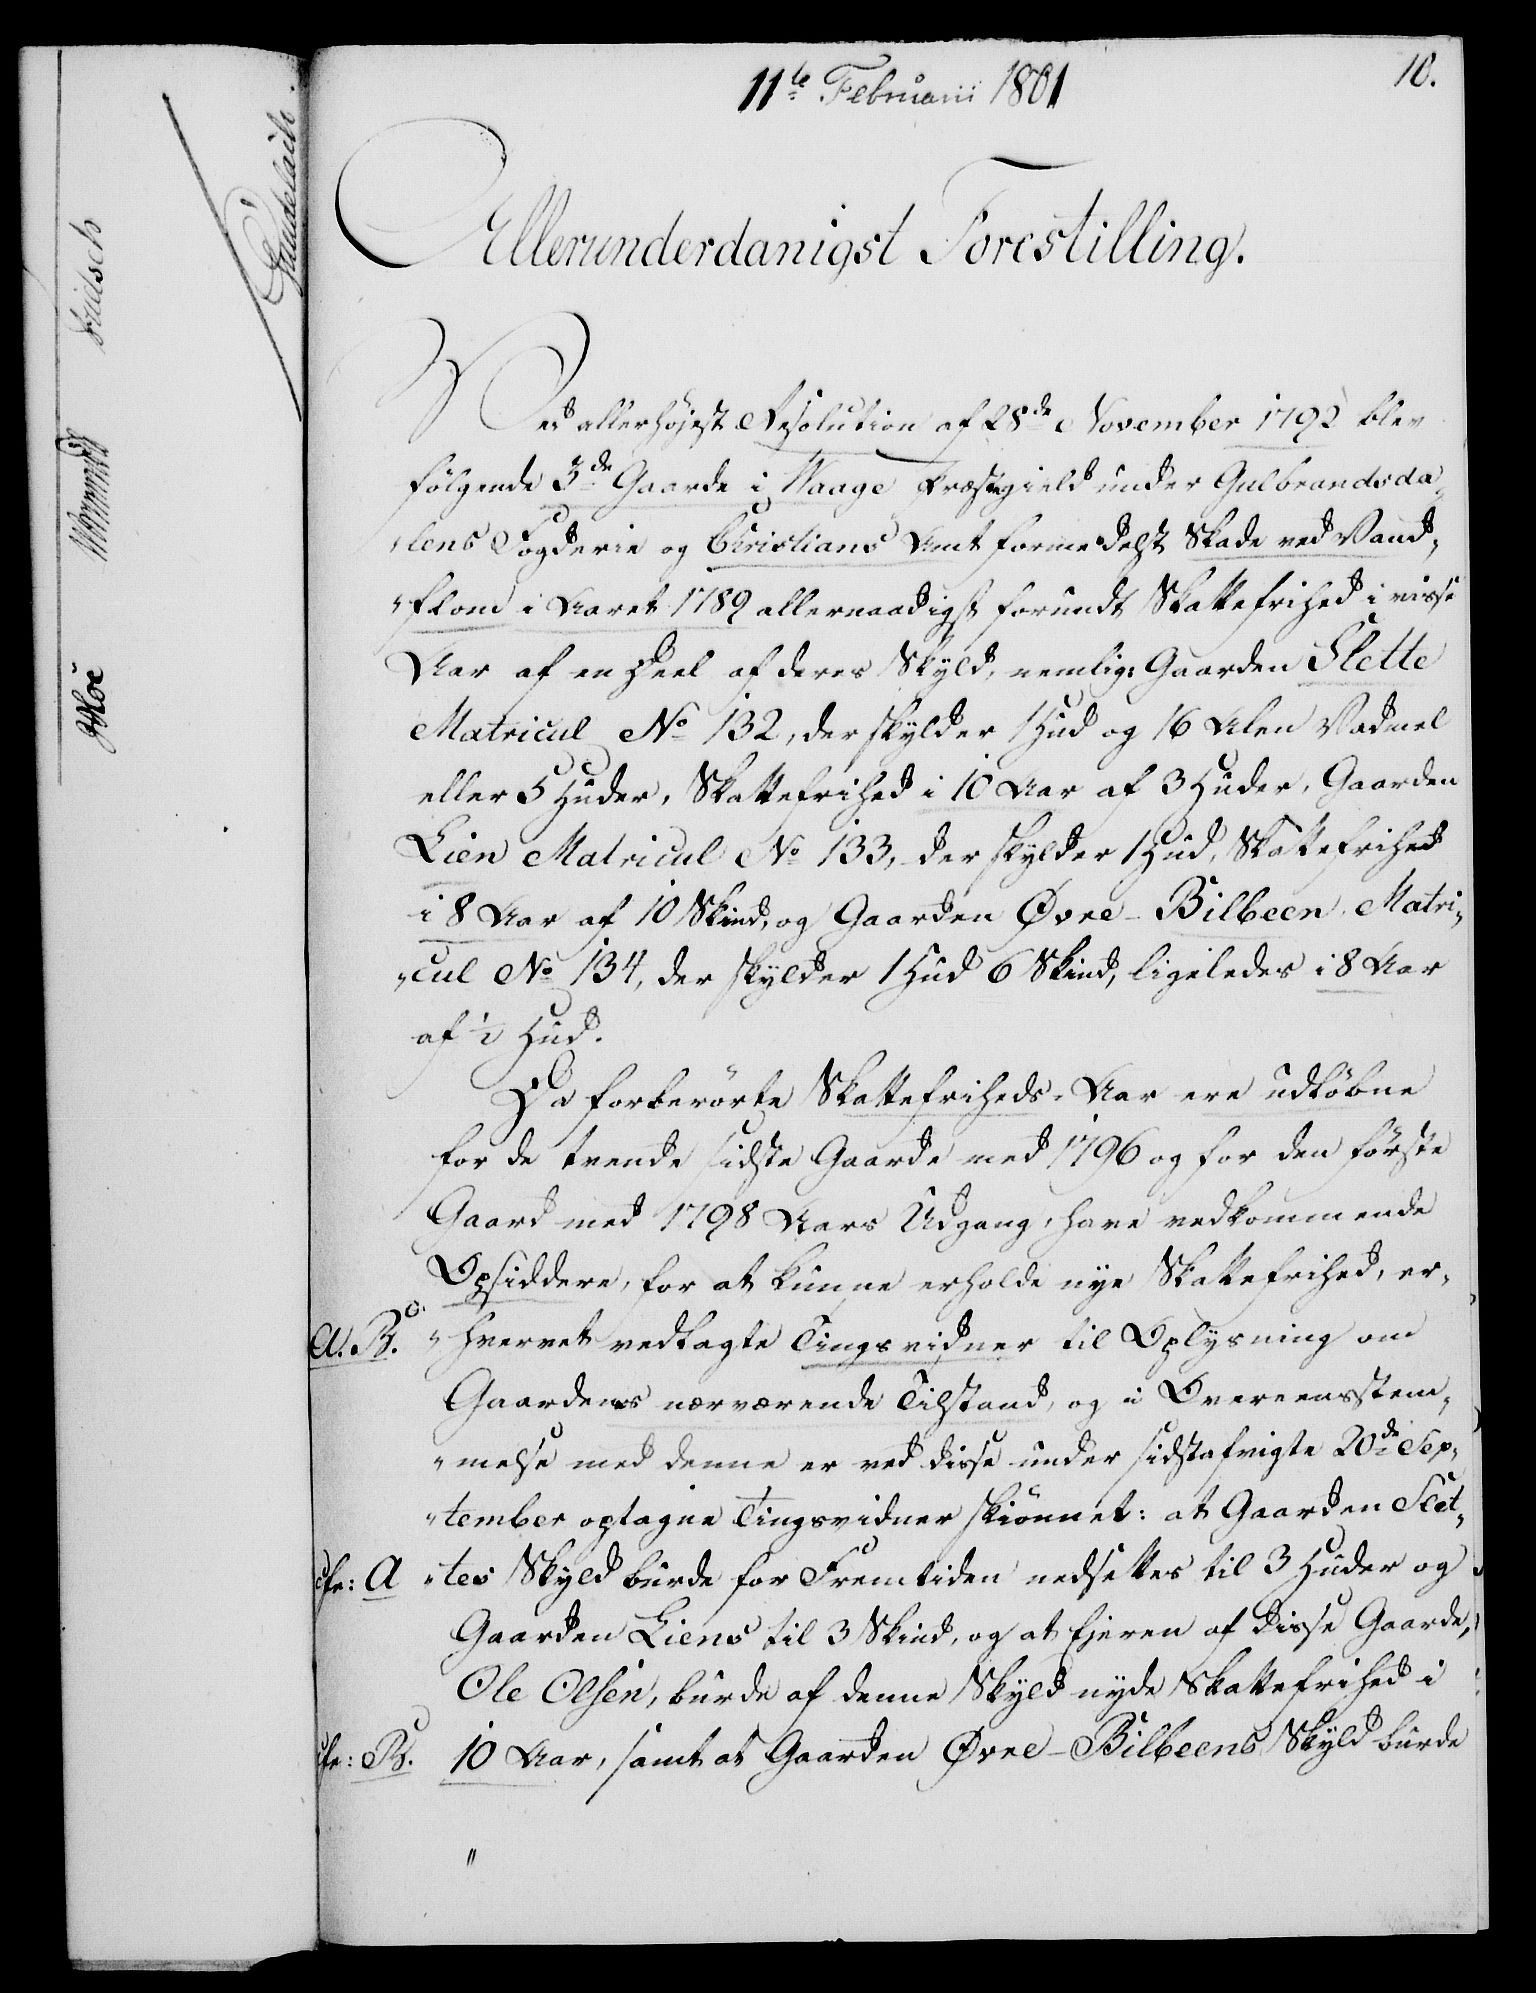 11te Februarii 1801
10.
Allerunderdanigst Forestilling.
Ved allerhöjest Resolution af 28de November 1792 blev
følgende 3de Gaarde i Waage Præstegield under Gulbrandsda-
„lens Fogderie og Christians Amt formedelst Skade ved Vand-
„flom i Aaret 1789 allernaadigst forundt Skattefrihed i visse
Aar af en Deel af deres Skyld, nemlig: Gaarden Slette
Matricul No 132, der skylder 1 Hud og 16 Alen Vadmel
eller 5 Huder, Skattefrihed i 10 Aar af 3 Huder, Gaarden
Lien Matricul No 133, der skylder 1 Hud, Skattefrihed
i 8 Aar af 10 Skind, og Gaarden Øvre-Bilbeen Matri-
„cul No 134, der skylder 1 Hud 6 Skind, ligeledes i 8 Aar
af ½ Hud.
Da forberörte Skattefriheds-Aar ere udløbne
for de tvende sidste Gaarde med 1796 og for den förste
Gaard med 1798 Aars Udgang, have vedkommende
Opsiddere, for at kunne erholde nye Skattefrihed, er-
A. B. „hvervet vedlagte Tingsvidner til Oplysning om
Gaardenes nærværende Tilstand, og i Overeensstem-
„melse med denne er ved disse under sidstafvigte 20de Sep-
„tember optagne Tingsvidner skiönnet: at Gaarden Slet-
cfr: A „tes Skyld burde for Fremtiden nedsettes til 3 Huder og
Gaarden Liens til 3 Skind, og at Ejeren af disse Gaarde,
Ole Olsen, burde af denne Skyld nyde Skattefrihed i
cfr: B. 10 Aar, samt at Gaarden Øvre-Bilbeens Skyld burde
"